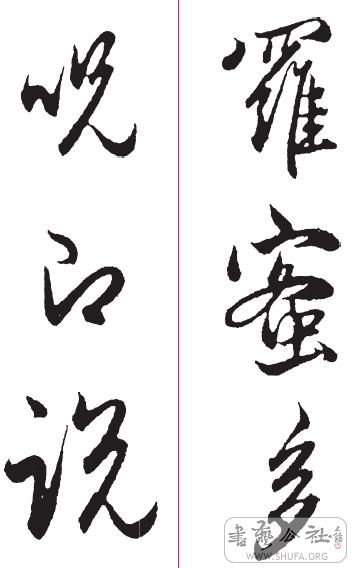 羅蜜多
呪即説
書藝公社
WWW.SHUFA.ORG